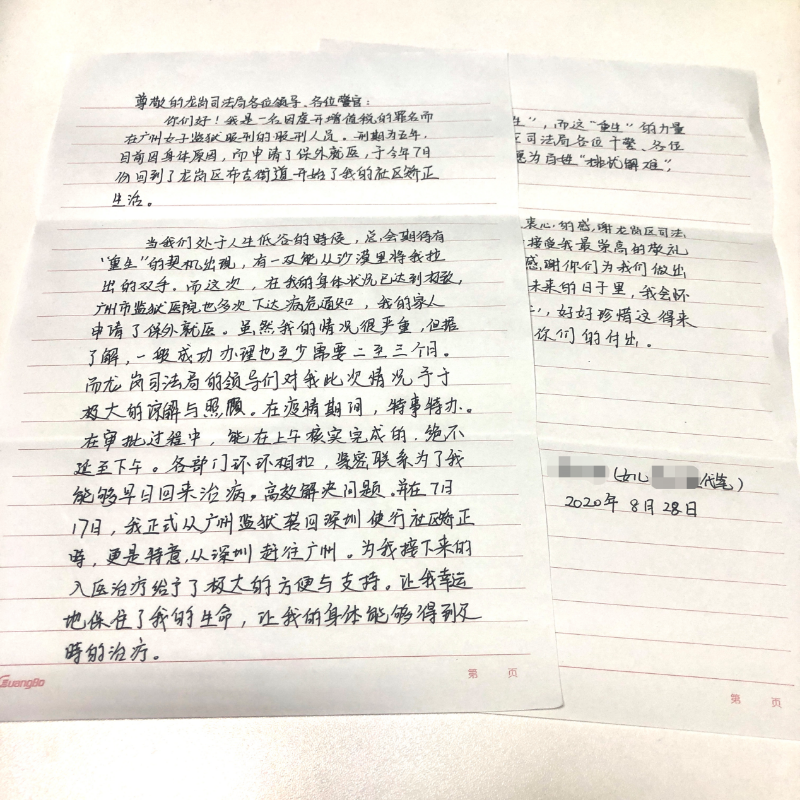 尊敬的龙岗司法局各位领导、各位警官:
你们好!我是一名因虚开增值税的罪名而
在广州女子监狱服刑的服刑人员。刑期为五年,
目前因身体原因,而申请了保外就医,于今年7月
份回到了龙岗区布吉街道开始了我的社区矫正
生活。
当我们处于人生低谷的时候,总会期待有
“重生”的契机出现,有一双能从沙漠里将我拉
出的双手。而这次,在我的身体状况已达到极致,
广州市监狱医院也多次下达病危通知,我的家人
申请了保外就医。虽然我的情况很严重,但据
了解,一般成功办理也至少需要二至三个月。
而龙岗司法局的领导们对我此次情况予于
极大的谅解与照顾。在疫情期间,特事特办。
在审批过程中,能在上午核实完成的,绝不
延至下午。各部门环环相扣,紧密联系为了我
能够早日回来治病。高效解决问题。并在7月
17日,我正式从广州监狱转回深圳使行社区矫正
時,更是特意从深圳赶往广州。为我接下来的
入医治疗给予了极大的方便与支持。让我幸运
地保住了我的生命,让我的身体能够得到及
時的治疗。
GuangBo
第 页
生”,而这“重生”的力量
区司法局各位干警、各位
愿为百姓“排忧解难”,
衷心的感谢龙岗区司法
接受我最崇高的敬礼
感谢你们为我们做出
未来的日子里,我会怀
,好好珍惜这得来
你们的付出。
(女儿 代笔)
2020年 8月 28日
第 页